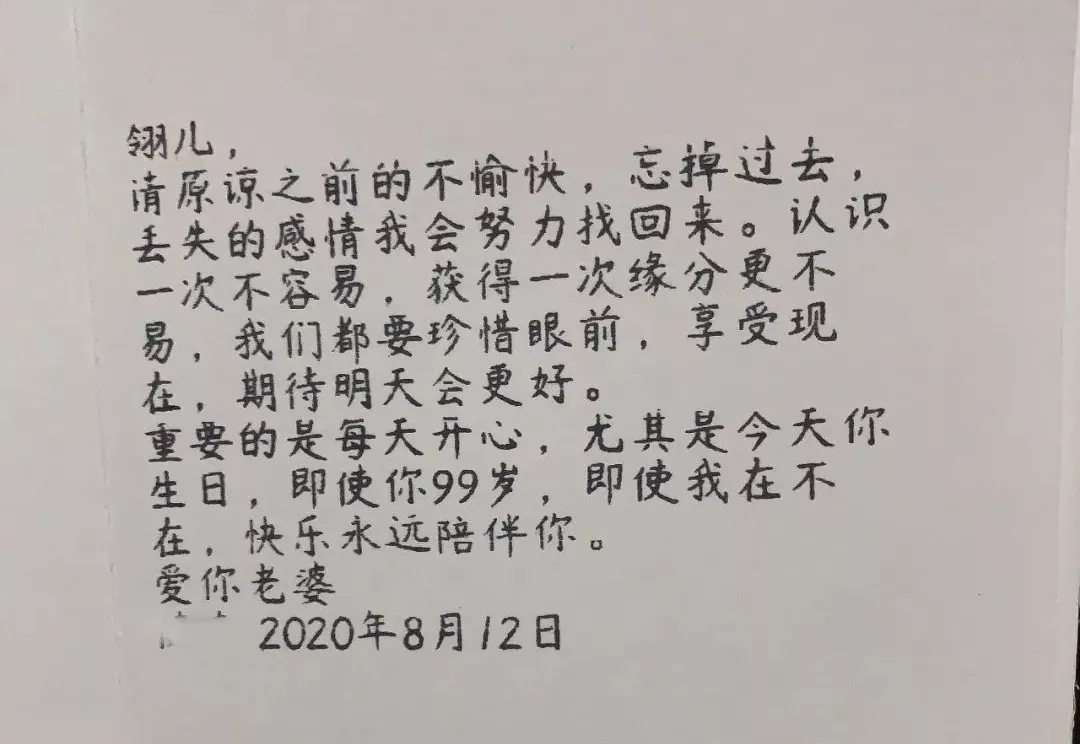 翎儿，
请原谅之前的不愉快，忘掉过去，
丢失的感情我会努力找回来。认识
一次不容易，获得一次缘分更不
易，我们都要珍惜眼前，享受现
在，期待明天会更好。
重要的是每天开心，尤其是今天你
生日，即使你99岁，即使我在不
在，快乐永远陪伴你。
爱你老婆
2020年8月12日